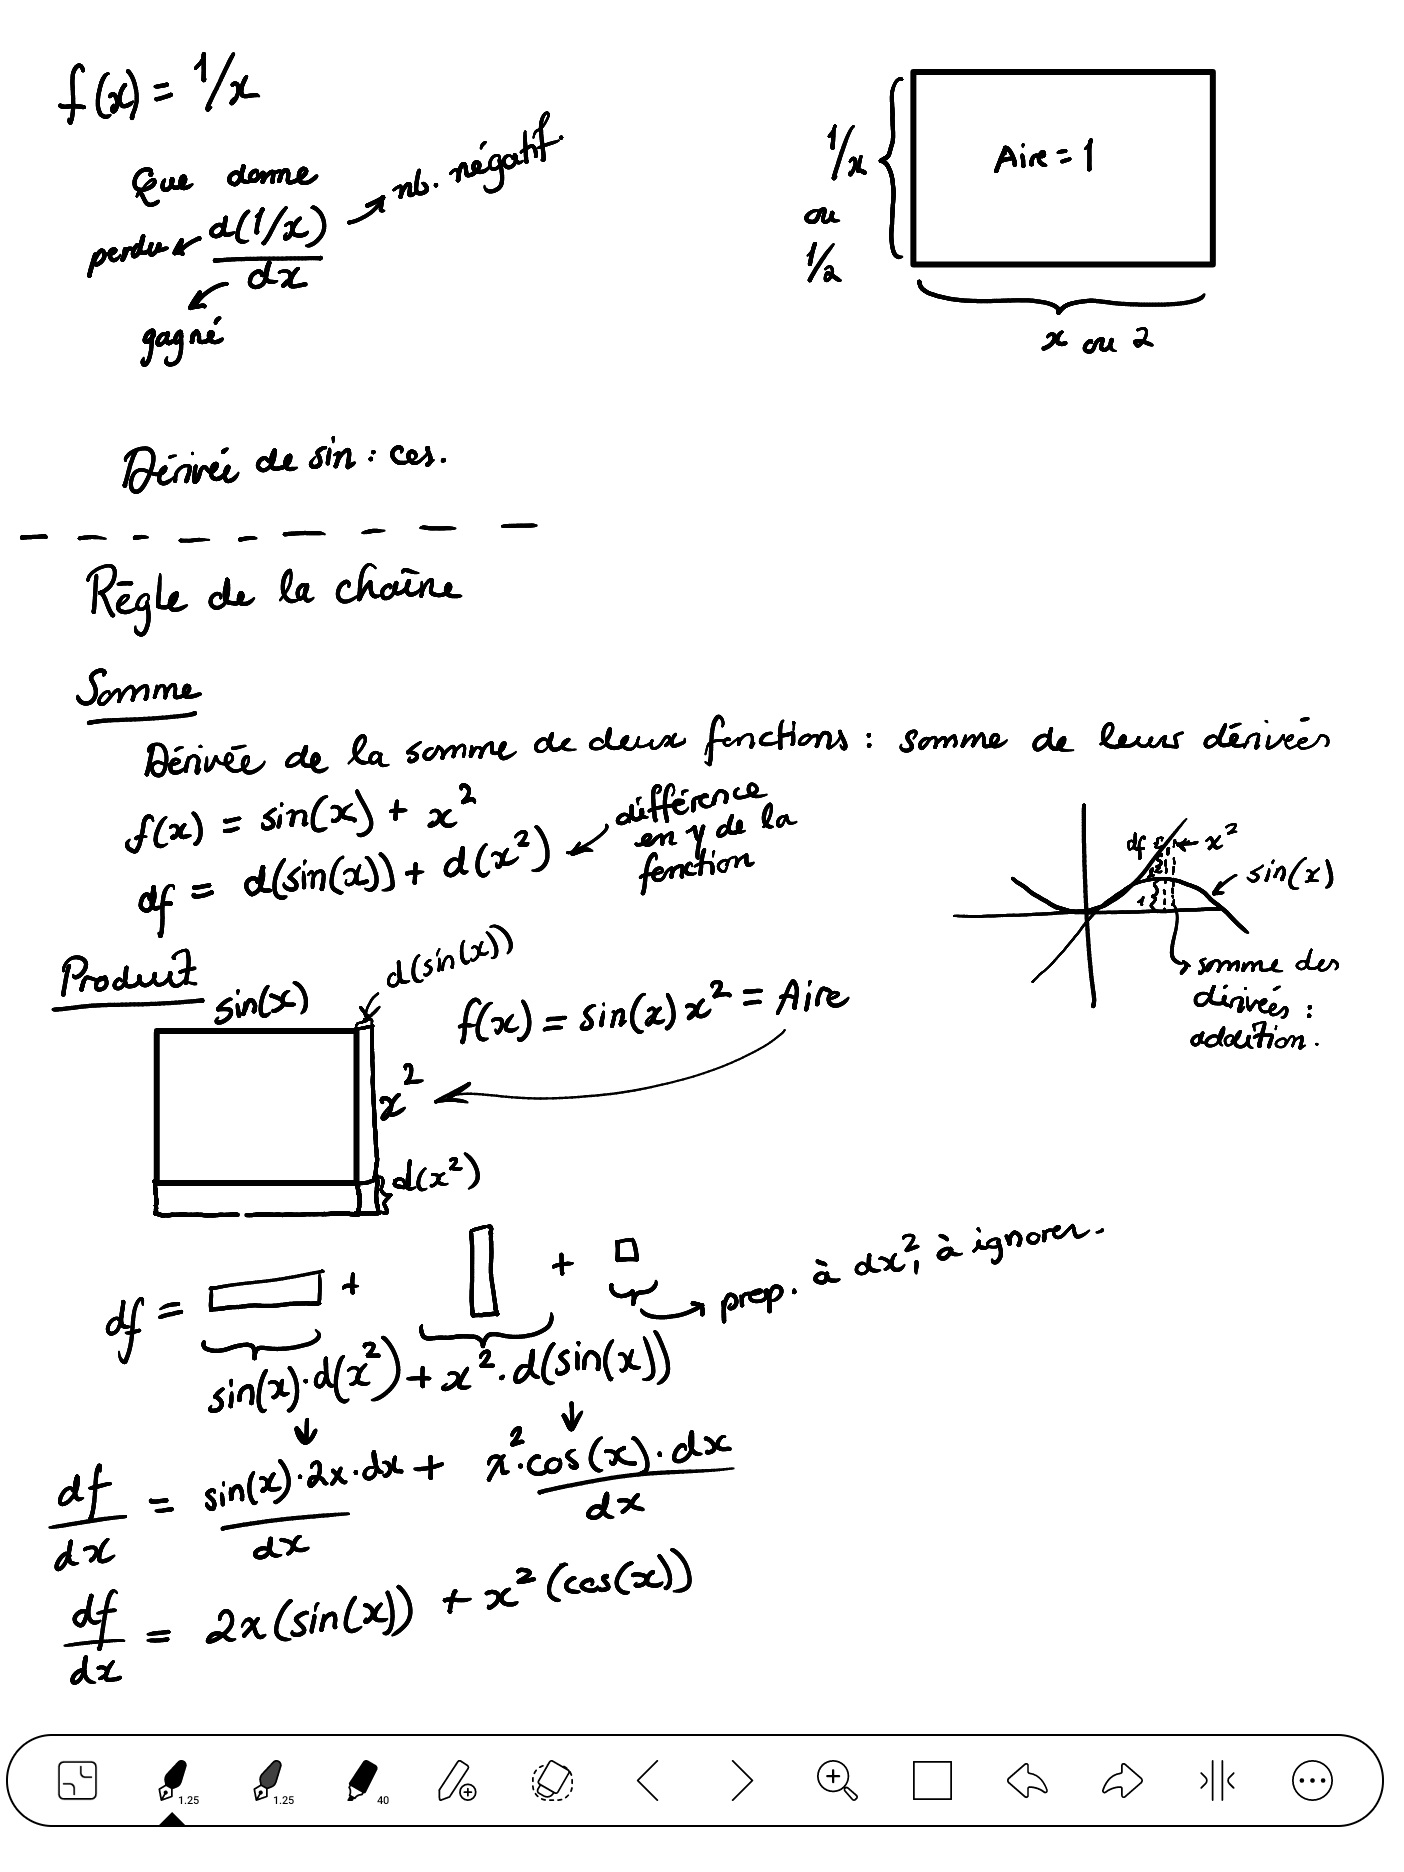 f(x) = 1/x
Que donne
perdu d(1/x) nb. négatif.
dx
gagné
1/x
ou
1/2
Aire = 1
x ou 2
Dérivée de sin : cos.
Règle de la chaîne
Somme
Dérivée de la somme de deux fonctions : somme de leurs dérivées
f(x) = sin(x) + x²
df = d(sin(x)) + d(x²)
différence
en y de la
fonction
df x²
sin(x)
somme des
dérivées :
addition.
Produit
sin(x)
d(sin(x))
f(x) = sin(x) x² = Aire
x²
d(x²)
df = + +
prop. à dx², à ignorer.
sin(x)·d(x²) + x²·d(sin(x))
df/dx = sin(x)·2x·dx/dx + x²·cos(x)·dx/dx
df/dx = 2x(sin(x)) + x²(cos(x))
1.25
1.25
40